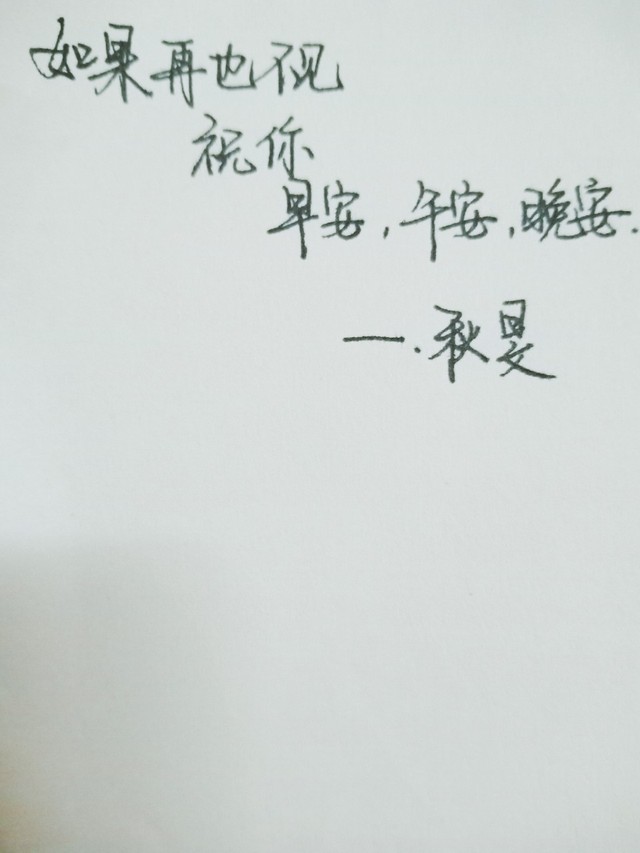 如果再也不见
祝你
早安,午安,晚安.
一.秋旻